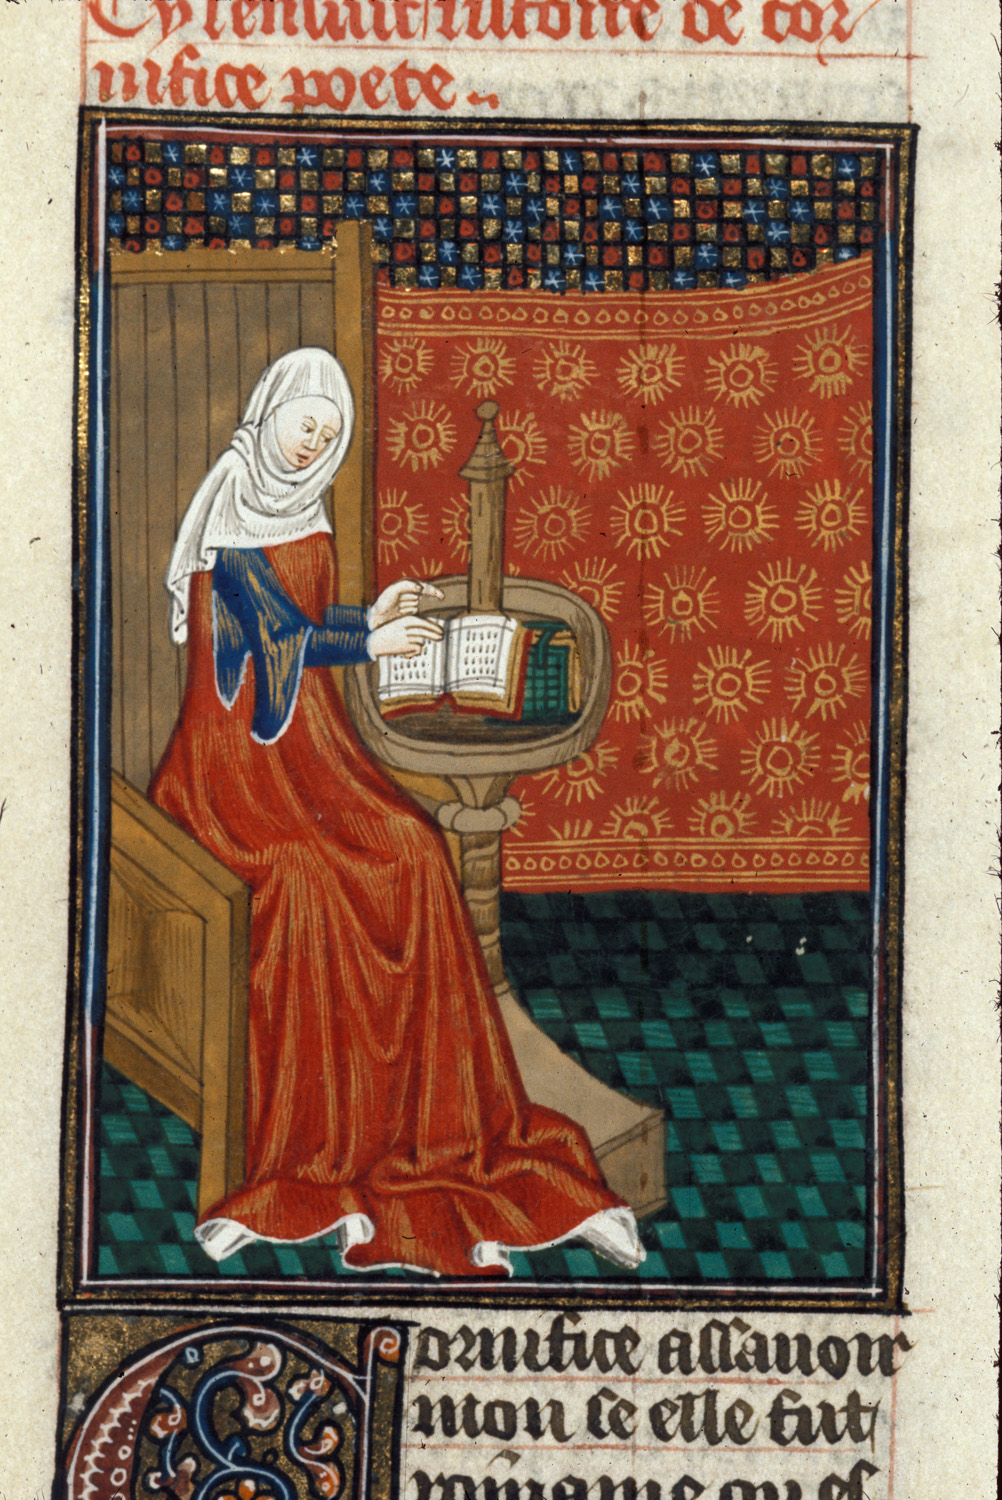 Cy sensuit listoire de cor
nifice poete
Cornifice assauoir
mon se elle fut